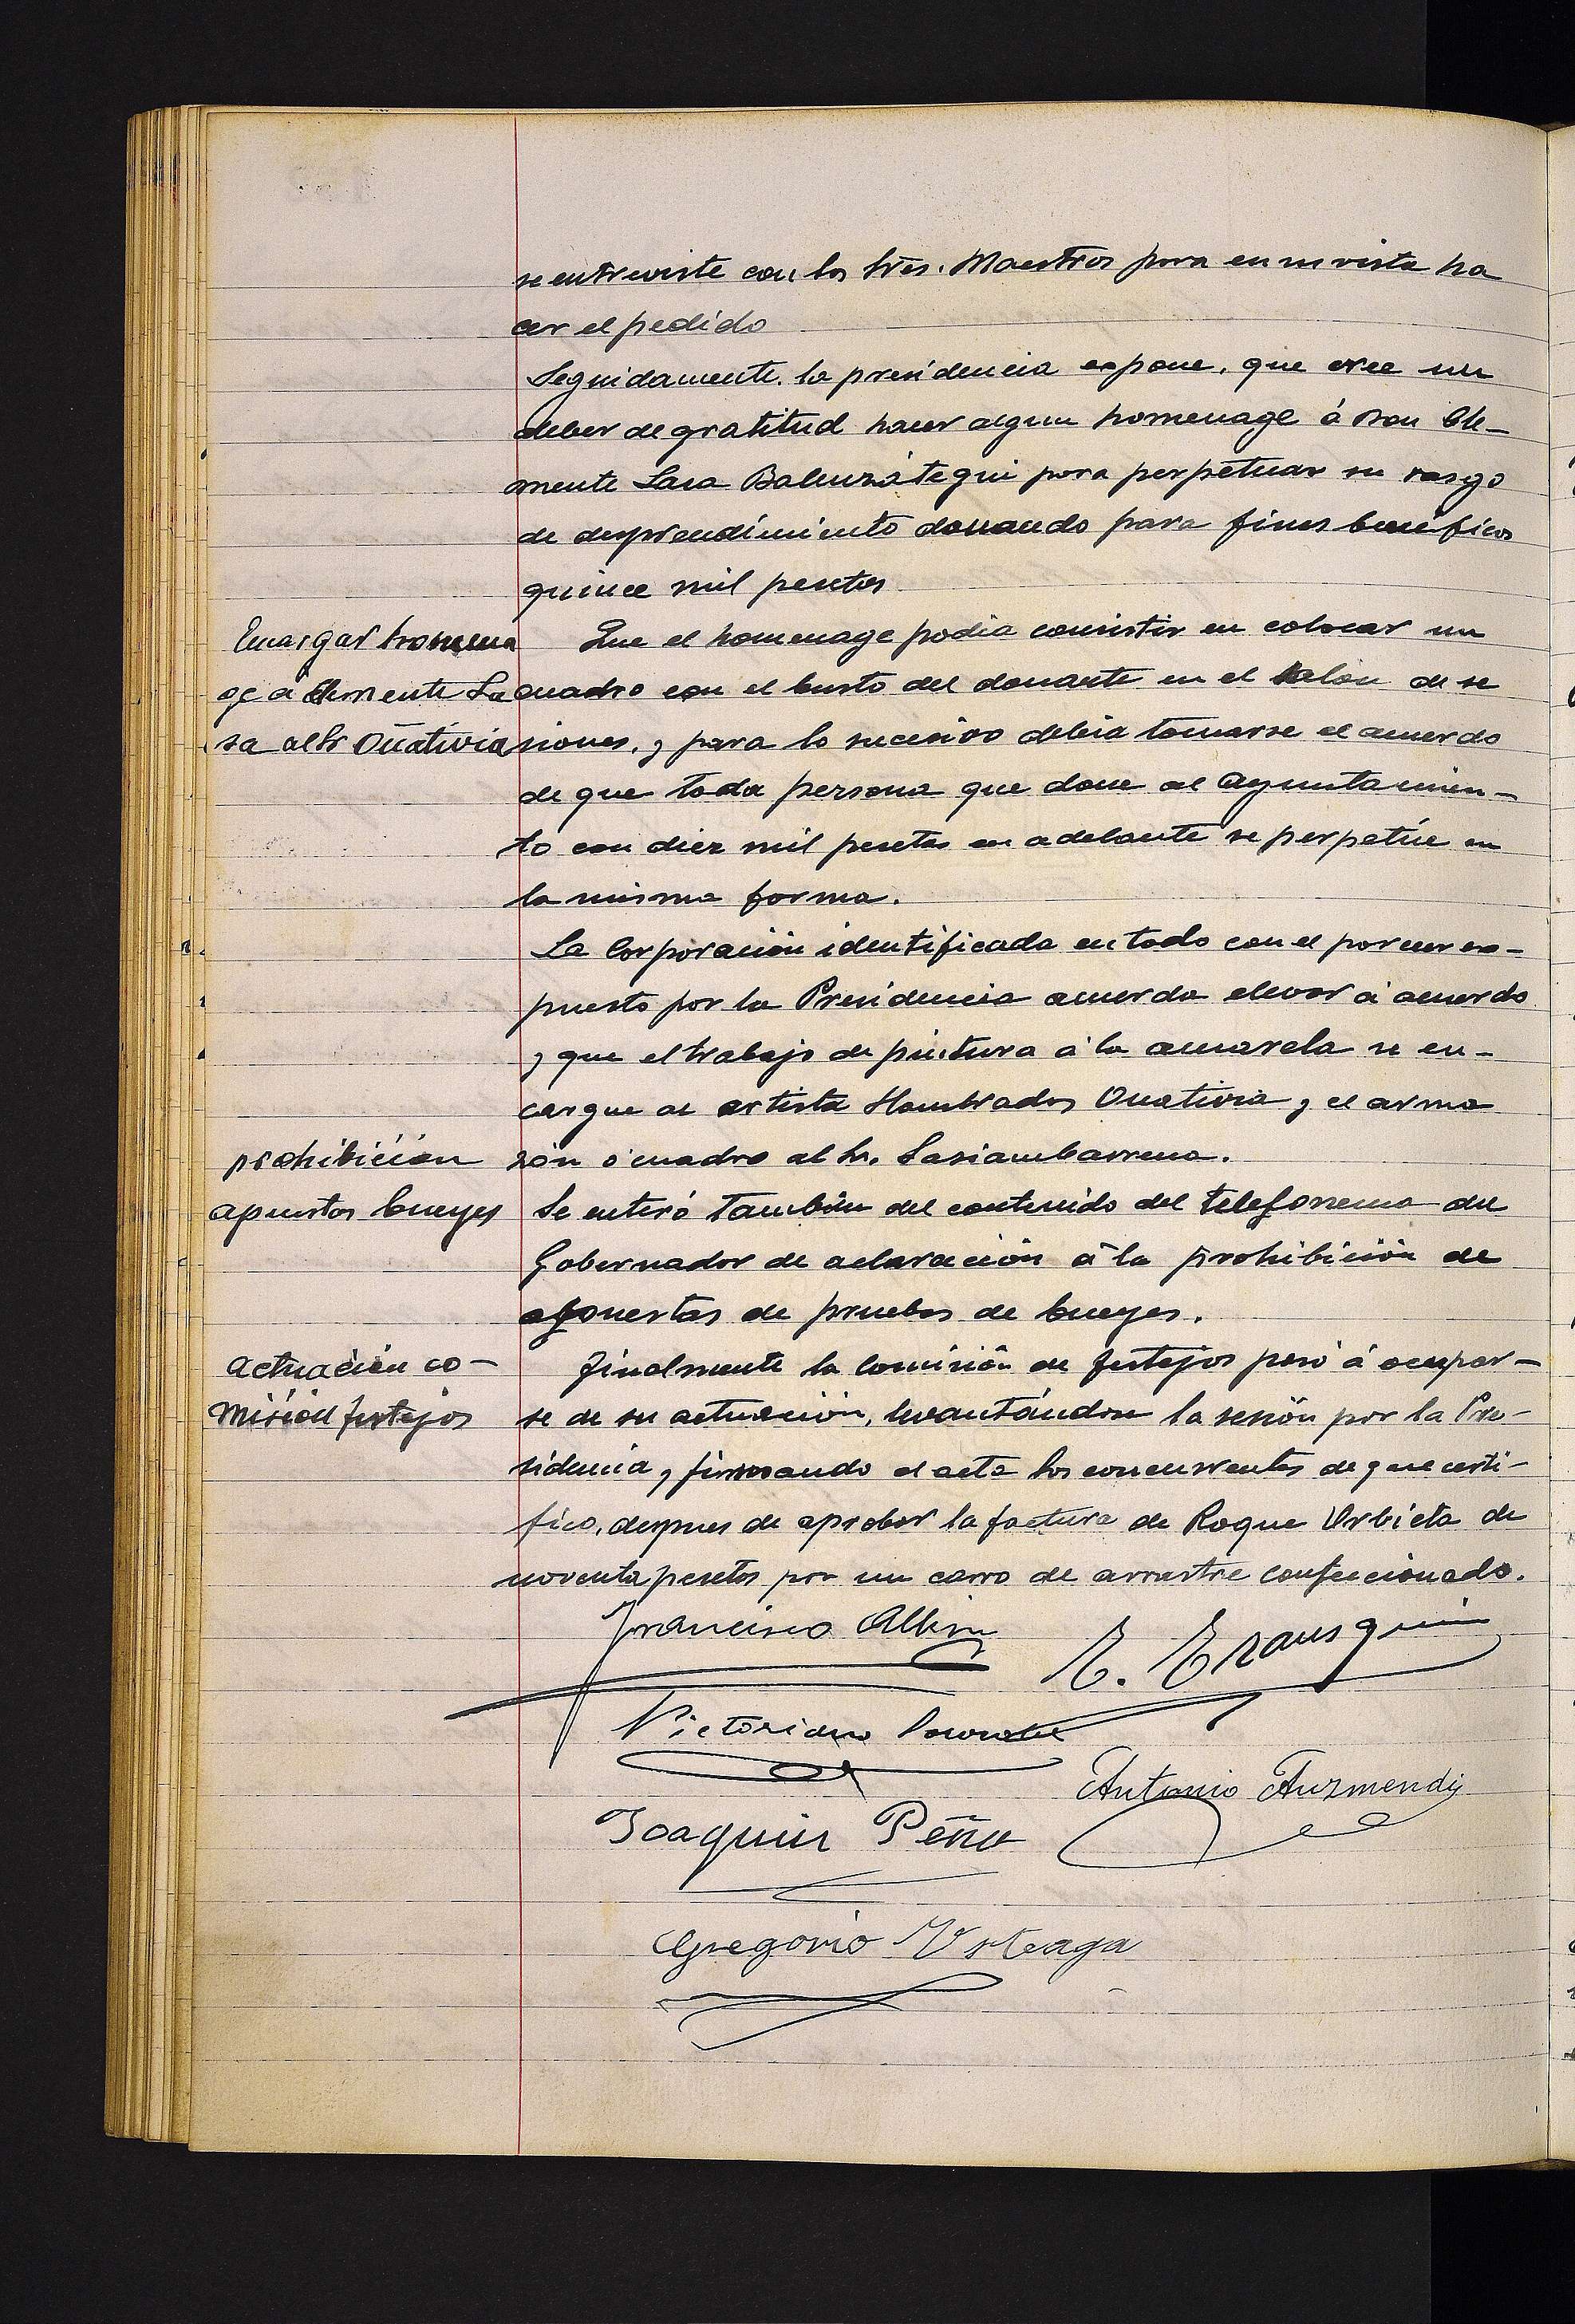 se entreviste con los Sres. Maestros para en su vista ha
cer el pedido
Seguidamente la presidencia expone, que cree un
deber de gratitud hacer algun homenage á Don Cle-
mente Lasa Balenzátegui para perpetuar su rasgo
de desprendimiento donando para fines beneficos
quince mil pesetas
Encargar homena
ge a Clemente La
sa al Sr Oñativia
Que el homenage podia consistir en colocar un
cuadro con el busto del donante en el salon de se
siones, y para lo sucesivo debia tomarse el acuerdo
de que toda persona que done al Ayuntamien-
to con diez mil pesetas en adelante se perpetúe en
la misma forma.
La Corporación identificada en todo con el parecer ex-
puesto por la Presidencia acuerda elevar á acuerdo
y que el trabajo de pintura á la acuarela se en-
cargue al artista Hombrados Oñativia y el arma
prohibición
apuestas bueyes
zón ó cuadro al Sr. Sasiambarrena.
Se enteró tambien del contenido del telefonema del
Gobernador de aclaración á la prohibición de
apuestas de pruebas de bueyes.
Actuación co-
misión festejos
Finalmente la Comisión de festejos pasó á ocupar-
se de su actuación, levantándose la sesión por la Pre-
sidencia, firmando el acta los concurrentes de que certi-
fico, despues de aprobar la factura de Roque Urbieta de
noventa pesetas por un carro de arrastre confeccionado.
Francisco Albisu
E. Erausquin
Victoriano
Antonio Auzmendi
Joaquin Peña
Gregorio Usteaga